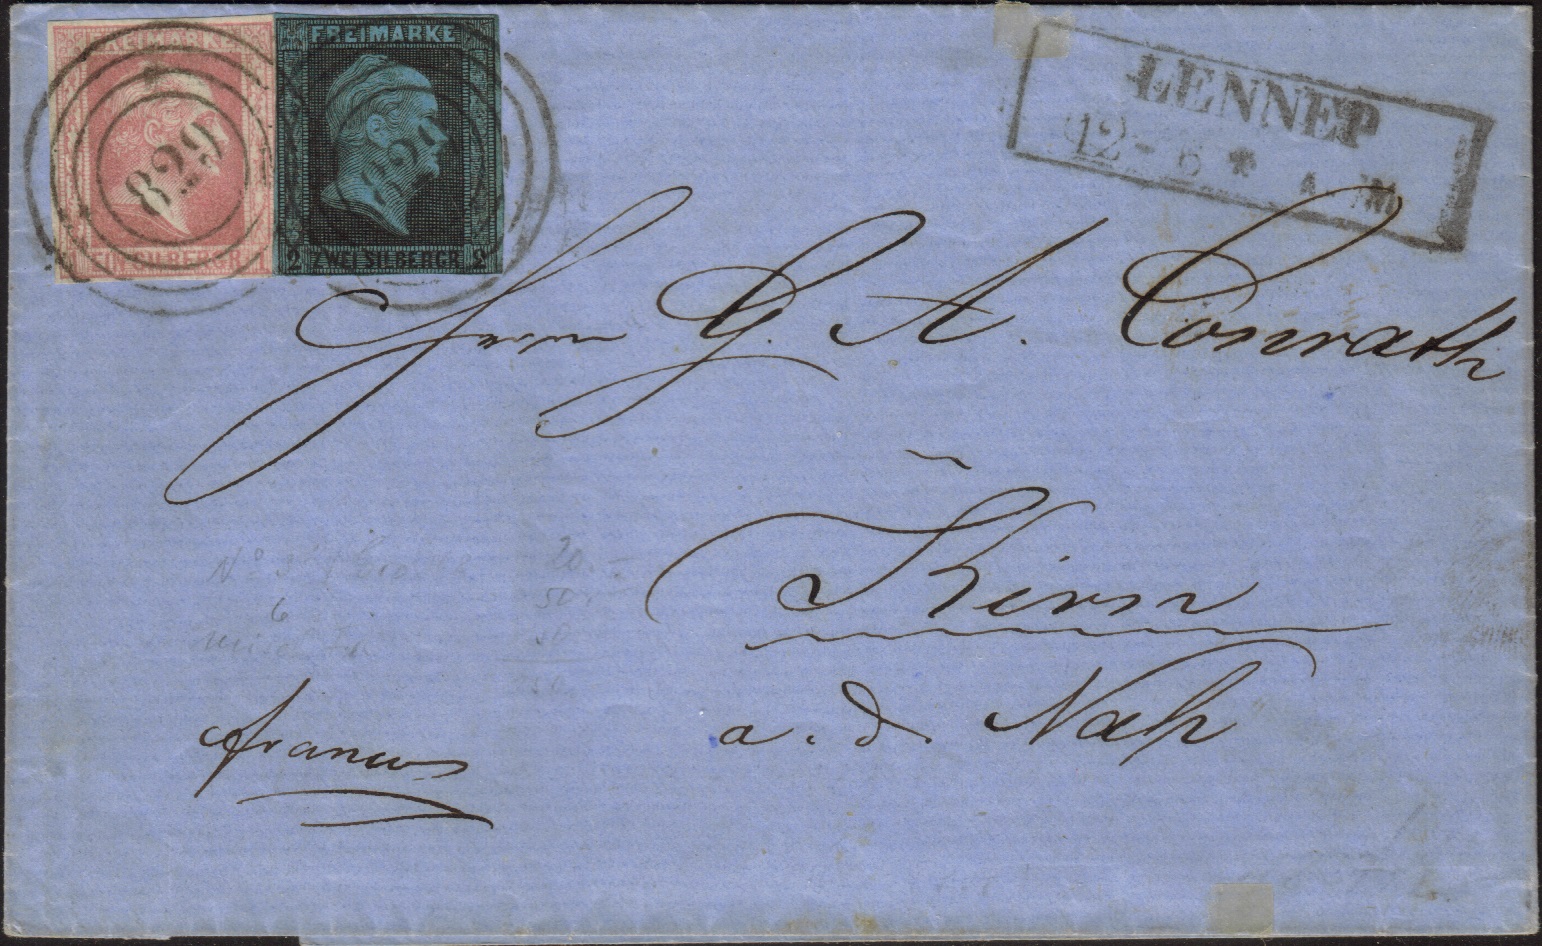 FREIMARKE
EIN SILBERGR.
829
FREIMARKE
2 ZWEI SILBERGR. 2
829
LENNEP
12 - 6 *
Herrn G. A. Conrath
Kirn
a. d. Nah
franco
20.-
50.-